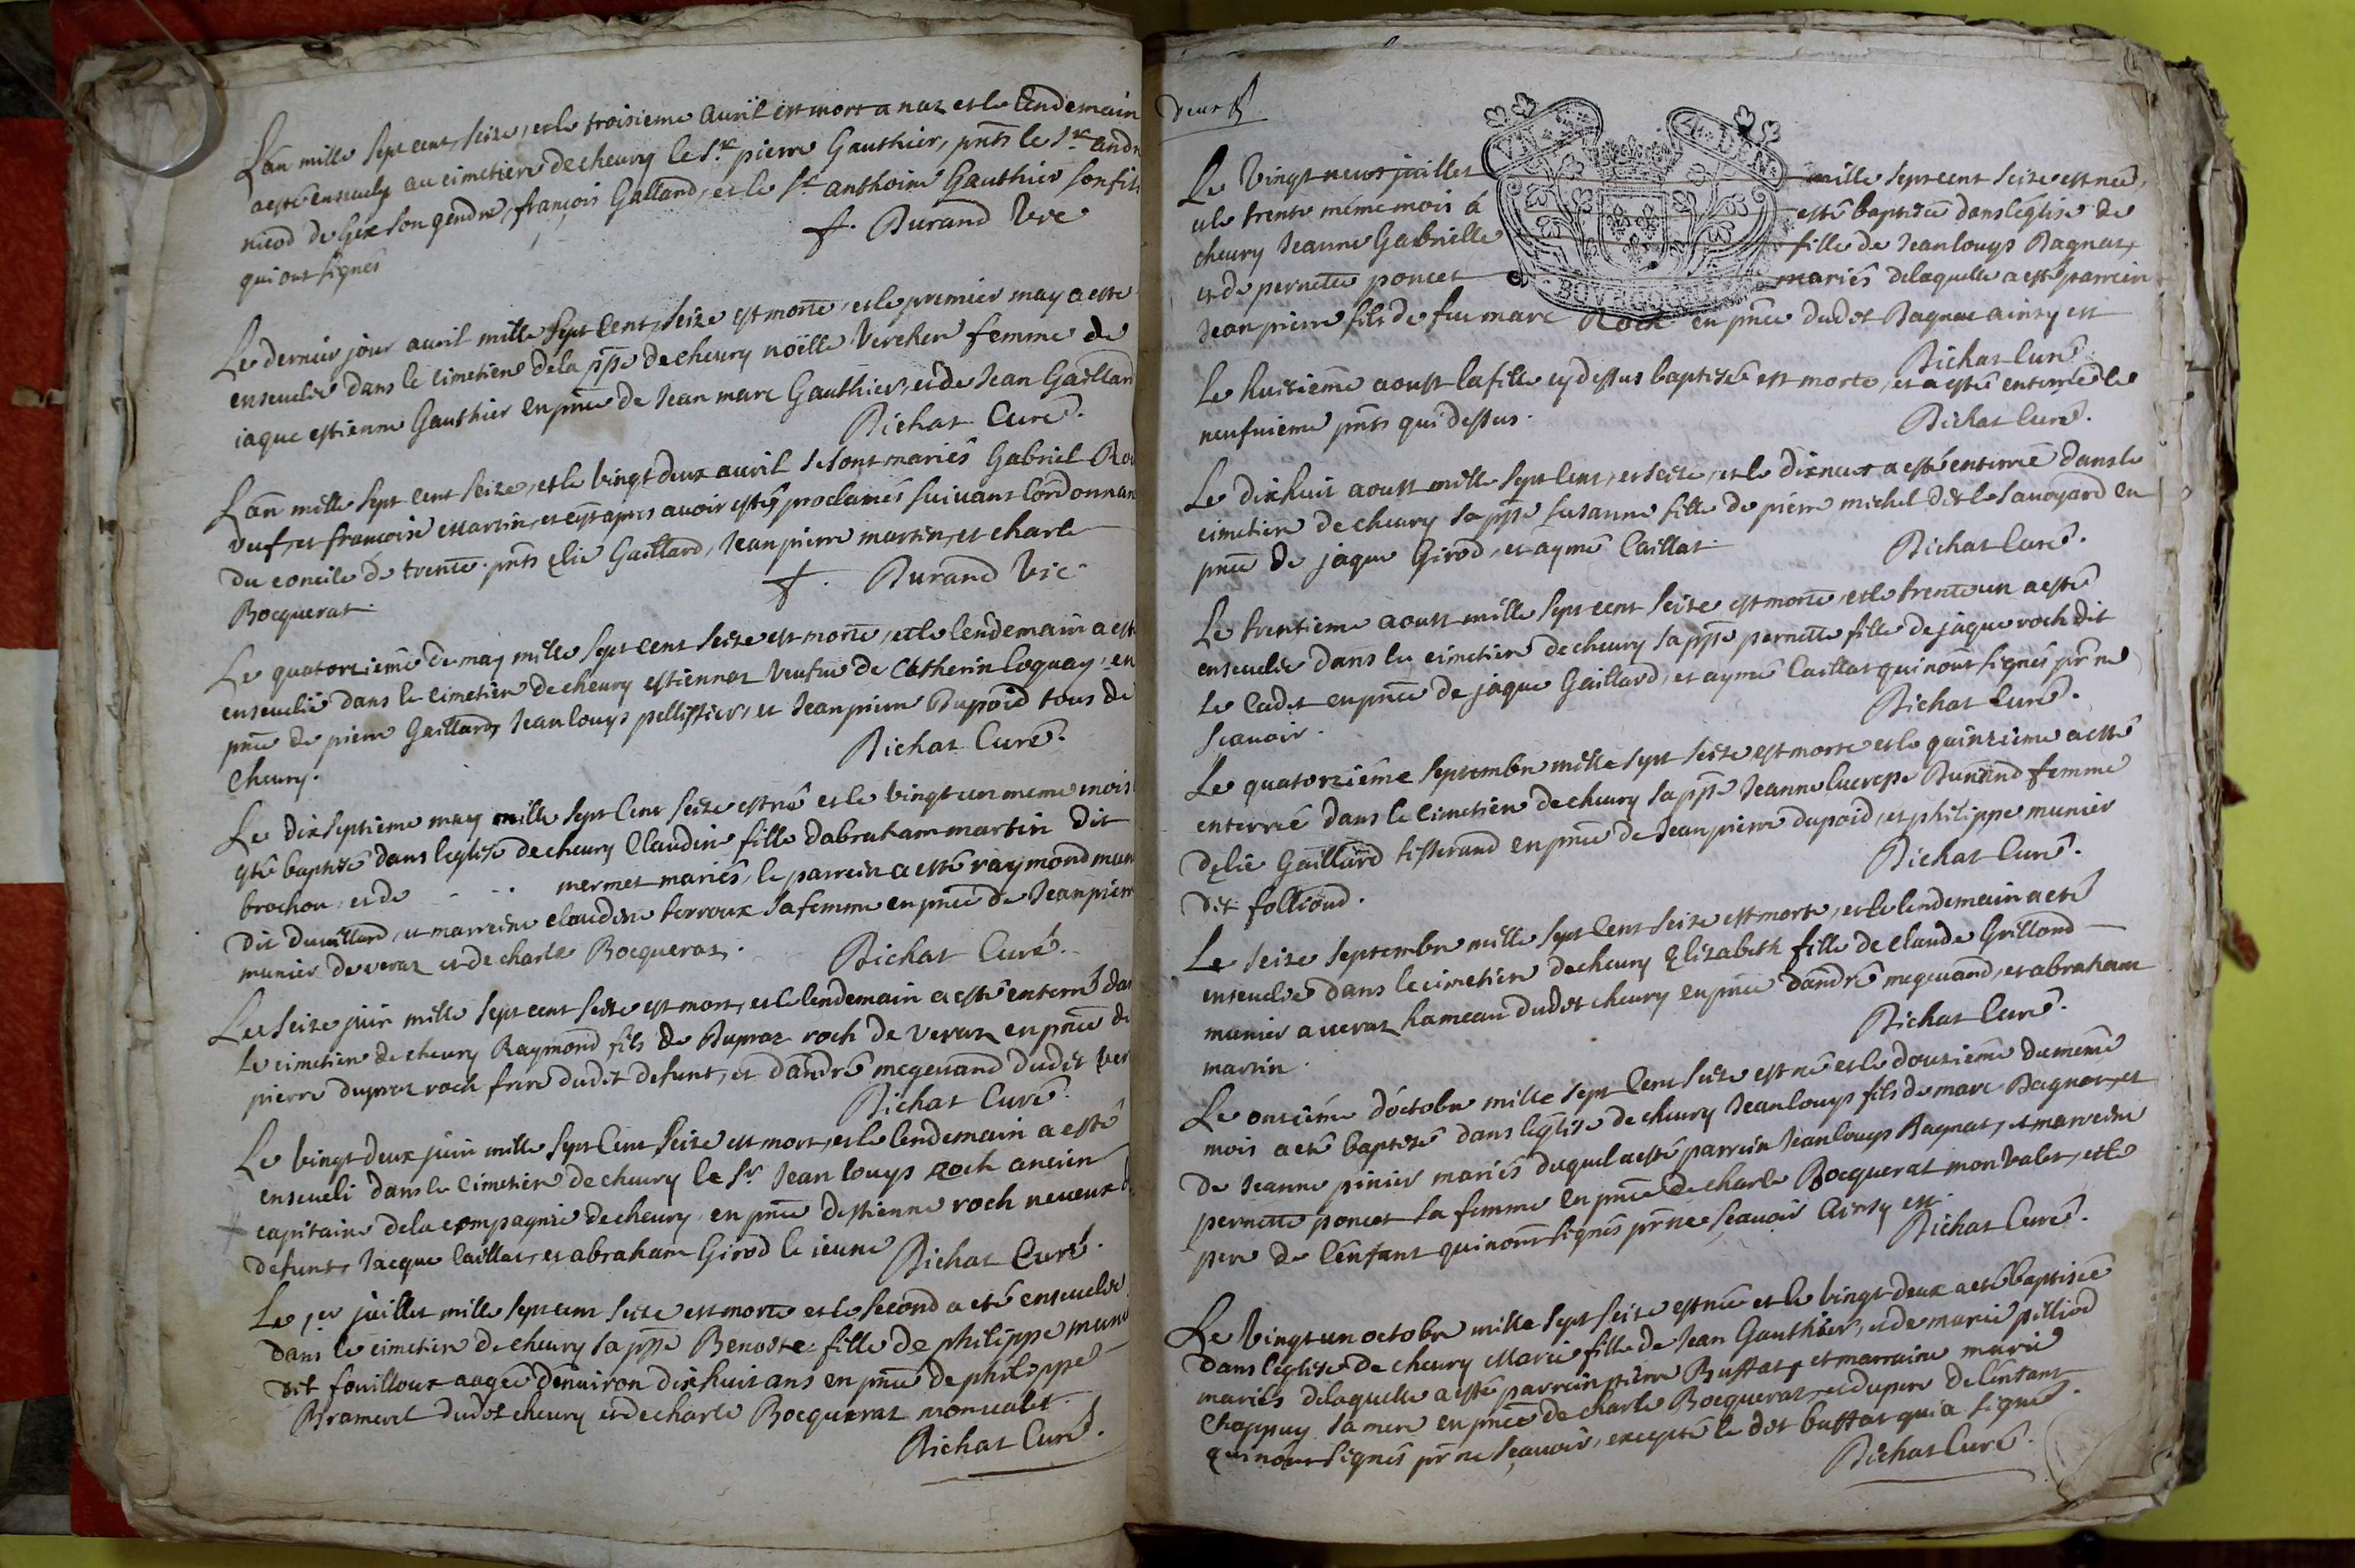 L'an mille sept cent seize, et le troisieme avril est mort a naz et le lendemain
a esté enseuely au cimetiere de cheury le Sr pierre Gauthier, pnts le Sr andr
nicod de Gex son gendre, françois Galland, et le Sr anthoine Gauthier son fils
qui ont signés
f. Durand Vic
Le dernier jour avril mille sept cent seize est morte, et le premier may a esté
enseuelie dans le cimetiere de la ppe de cheury noëlle Vercher femme de
iaque estienne Gauthier en pnce de Jean marc Gauthier, et de Jean Gaillard
Richat Curé.
L'an mille sept cent seize, et le vingt deux avril se sont mariés Gabriel Ro
veuf, et françoise Martin, et c'est apres avoir estés proclamés suivant l'ordonnan
du concile de trente. pnts Elie Gaillard, Jean pierre martin, et charle
Bocquerat.
f. Durand Vic
Le quatorzième de may mille sept cent seize est morte, et le lendemain a est
enseuelie dans le cimetiere de cheury estiennaz veufue de Catherin Coquay, en
pnce de pierre Gaillard, Jean louys pellissier, et Jean pierre Dupoid tous de
cheury.
Richat Curé.
Le dixseptieme may mille sept cent seize est née et le vingt un meme mois
esté baptisé dans leglise de cheury Claudine fille dabraham martin dit
brochou, et de - - - mermet mariés, le parrein a esté raymond mun
dit duvillard, et marreine claudine terroux sa femme en pnce de Jean pierr
munier de veraz et de charle Bocqueraz.
Richat Curé.
Le seize juin mille sept cent seize est mort, et le lendemain a esté enterré dan
le cimetiere de cheury Raymond fils de Dupraz roch de veraz en pnce de
pierre dupraz roch frere dudit defunt, et dandré megevand dudit ver
Richat Curé.
Le vingt deux juin mille sept cent seize est mort, et le lendemain a esté
enseueli dans le cimetiere de cheury le Sr Jean louys Roch ancien
capitaine de la compagnie de cheury en pnce d'estienne roch neveux d
defunt, Jacque Caillat, et abraham Girod le jeune
Richat Curé.
Le 1er juillet mille sept cent seize est morte et le second a esté enseuelie
dans le cimetiere de cheury sa ppe Benoite fille de philippe muni
dit fouilloux aagée d'enuiron dixhuit ans en pnce de philippe
Brameret dudit cheury et de charle Bocqueraz mon valet.
Richat Curé.
deux
Le vingt neuf juillet mille sept cent seize est née,
et le trente meme mois a esté baptisée dans l'église de
cheury Jeanne Gabrielle fille de Jean louys Bagnaz,
et de pernette poncet mariés de laquelle a esté parrein
Jean pierre fils de feu marc Roch en pnce dudit Bagnaz ainsy est
Richat Curé.
Le huitieme aoust la fille cy dessus baptisée est morte, et a esté enterrée le
neufuieme pnts qui dessus.
Richat Curé.
Le dixhuit aoust mille sept cent, et seize, et le dixneuf a esté enterrée dans le
cimetiere de cheury sa ppe susanne fille de pierre michel dit le sauoyard en
pnce de jaque Girod, et aymé Caillat.
Richat Curé.
Le trentieme aoust mille sept cent seize est morte, et le trente un a esté
enseuelie dans le cimetiere de cheury sa ppe pernette fille de jaque roch dit
le Cadet en pnce de jaque Gaillard, et aymé Caillat qui n'ont signés pr ne
scauoir.
Richat Curé.
Le quatorzième septembre mille sept seize est morte et le quinzieme a esté
enterrée dans le cimetiere de cheury sa ppe Jeanne lucresse Dunand femme
d'Elie Gaillard tisserand en pnce de Jean pierre dupoid, et philippe munier
dit folliond.
Richat Curé.
Le seize septembre mille sept cent seize est morte, et le lendemain a esté
enseuelie dans le cimetiere de cheury Elizabeth fille de claude Grilliond
munier a veraz hameau dudit cheury en pnce d'andré megevand, et abraham
martin.
Richat Curé.
Le onzième d'octobre mille sept cent seize est né et le douzième du même
mois a esté baptisé dans l'église de cheury Jean louys fils de marc Bagnaz, et
de Jeanne pinier mariés duquel a esté parrein Jean louys Bagnaz, et marreine
pernette poncet sa femme en pnce de charle Bocqueraz mon valet, et le
pere de l'enfant qui n'ont signés pr ne sçauoir ainsy est.
Richat Curé.
Le vingt un octobre mille sept seize est née et le vingt deux a esté baptisée
dans l'église de cheury Marie fille de Jean Gauthier, et de marie pilliod
mariés de laquelle a esté parrein pierre Buffat, et marraine marie
Chappuy sa mere en pnce de charle Bocqueraz, et du pere de l'enfant
qui n'ont signés pr ne sçauoir, excepté le dit buffat qui a signé.
Richat Curé.